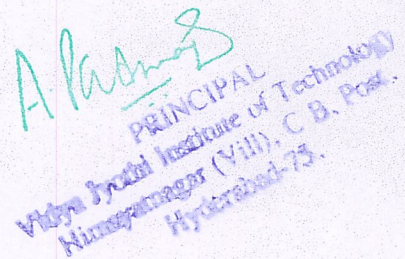 A. Padmaja
PRINCIPAL
Vidya Jyothi Institute of Technology
Himayatnagar (Vill), C. B. Post.
Hyderabad-75.